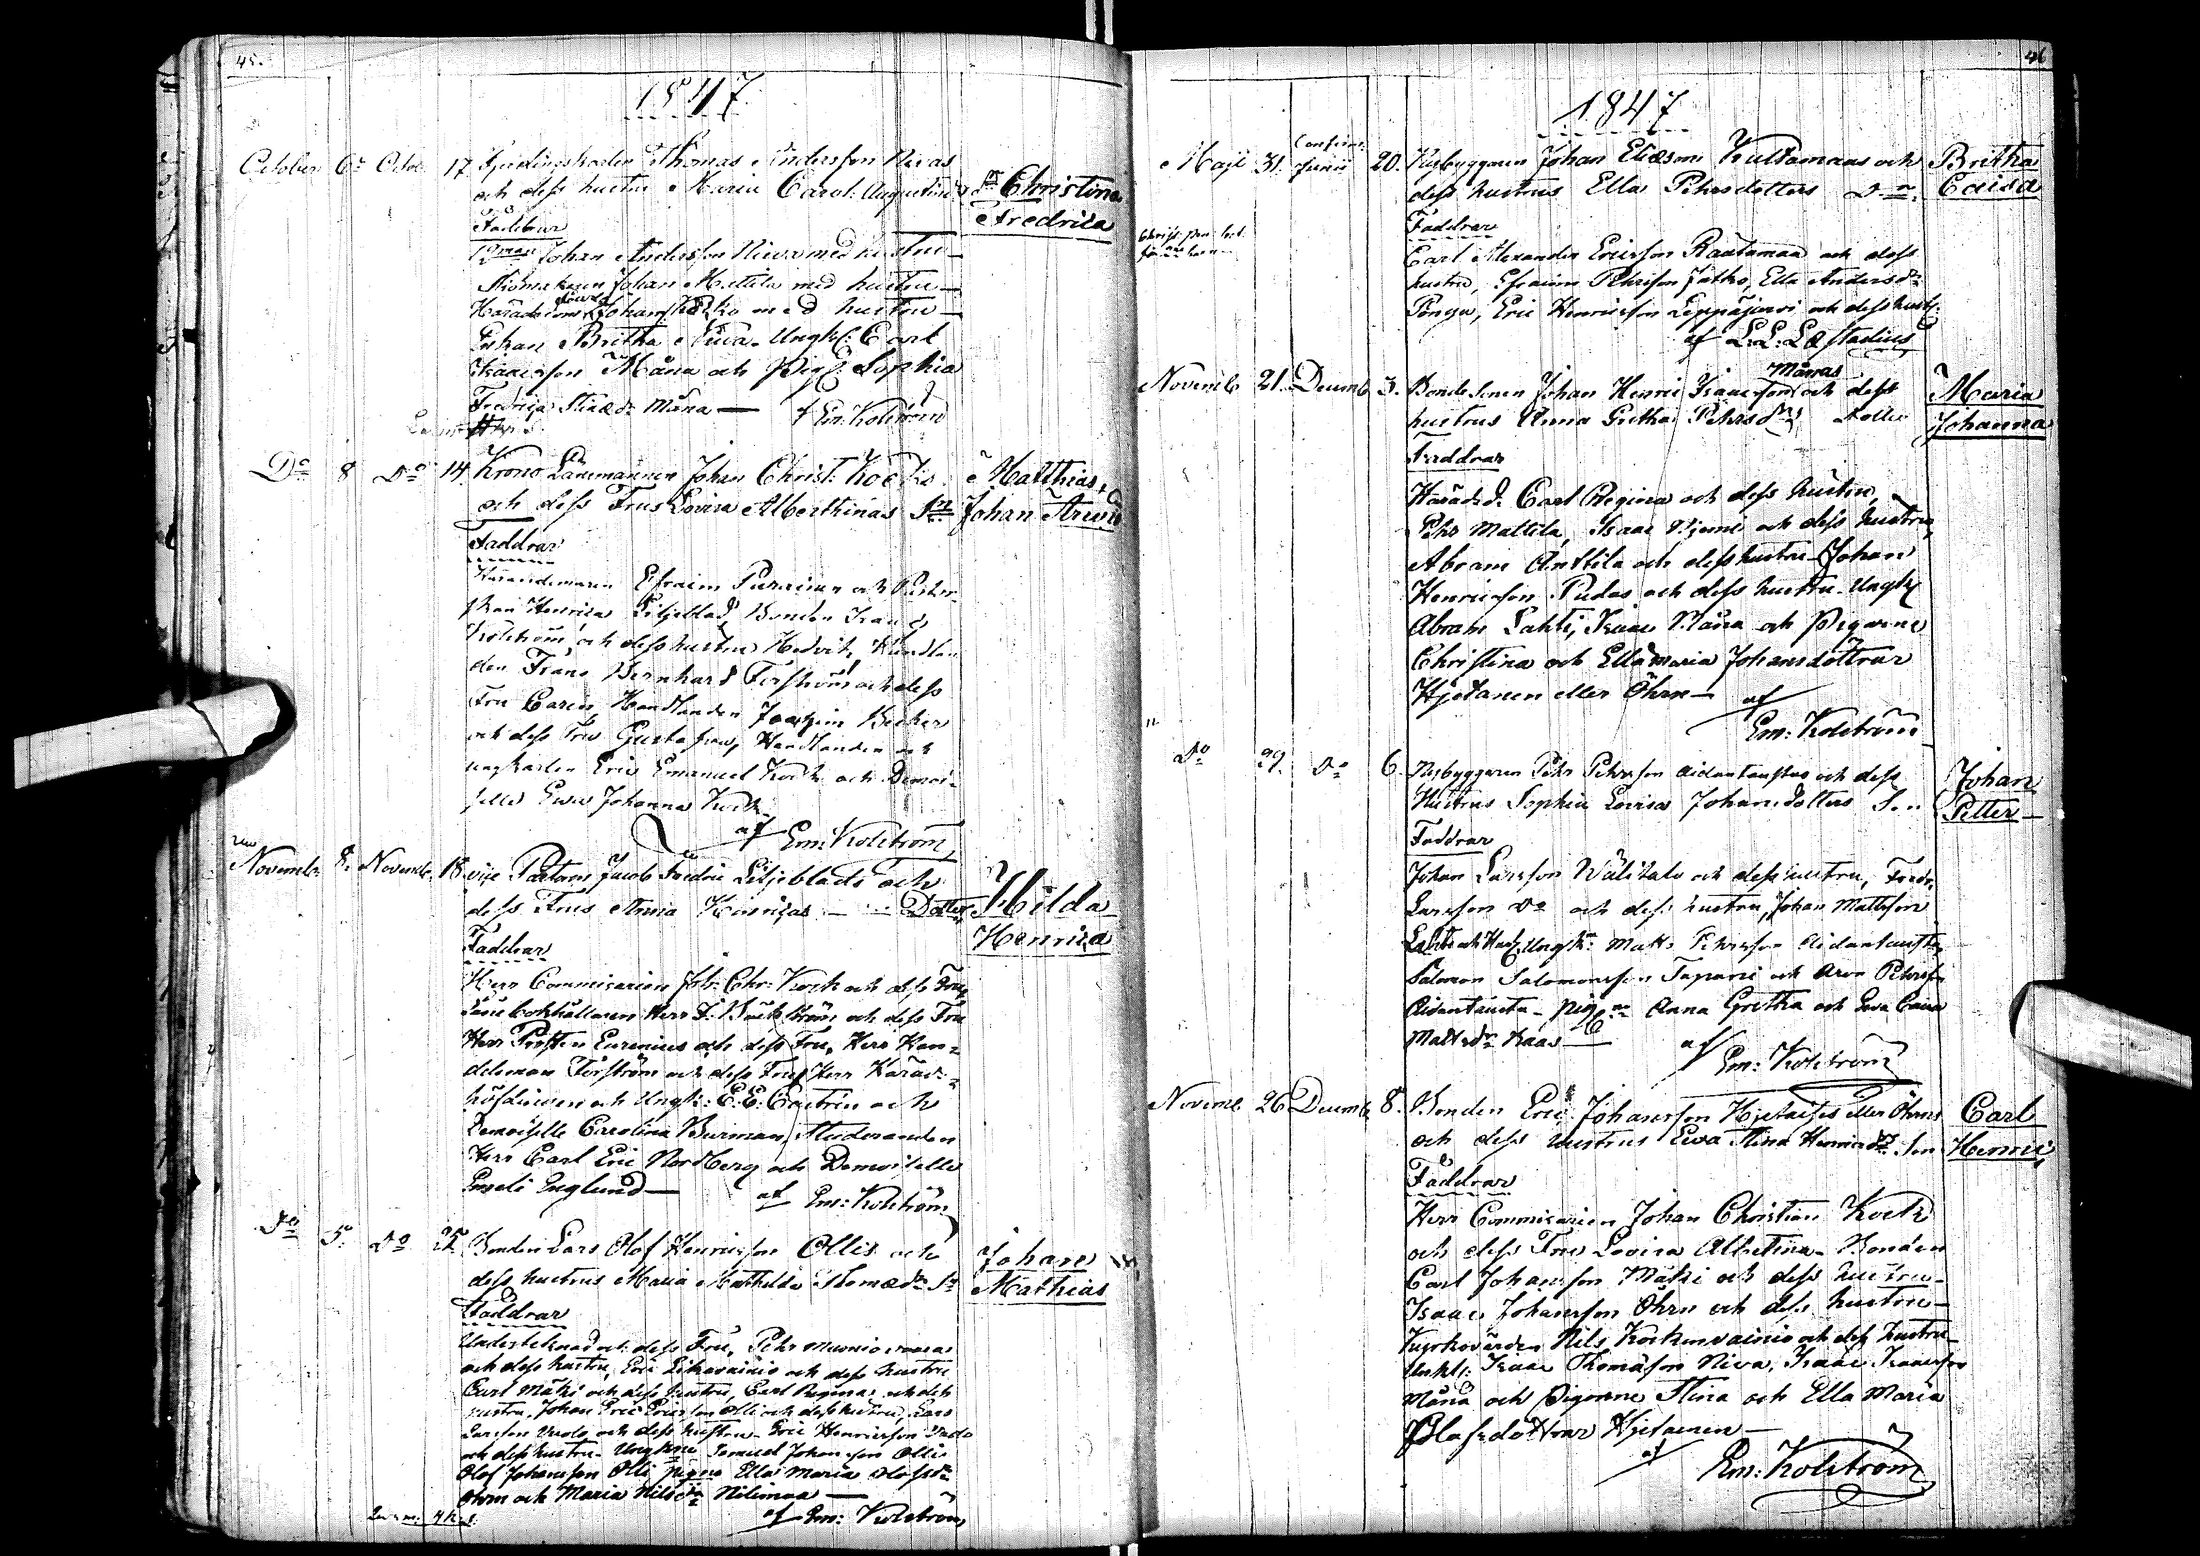 45.
1847
October 6 Octob 17 Gerdingskarlen Thomas Andersson Nivas Christina
och dess hustru Maria Carol. Augustin Fredrica
Faddrar
Johan Andersson Niwa med hustru
Johan Mattila med hustru
Johan med hustru
Enkan Britha Niwa. Ungk. Carl
Isaacsson Måna och Pig. Sophia
Fredrica Måna — af Em: Kolström
Do 8 Do 14 Krono Länsmannen Johan Christ. Kock Matthias
och dess Frus Lovisa Alberthinas Sn Johan Arwid
Faddrar
Efraim och
Henrica Liljeblad, Bonden Isaac
Kolström och dess hustru Hedvik, Handlan
den Frans Bernhard Forsström och dess
Fru Carin, Handlanden Joachim
och dess Fru Gustafava, Handlanden och
ungkarlen Eric Emanuel Kock och Demoi-
selle Ewa Johanna Kock
af Em: Kolström
Novemb. 8. Novemb. 18 vice Pastorn Jacob Fredric Liljeblads och Hilda
dess Frus Anna Henricas — Dotter Henrica
Faddrar
Herr Commissarien Joh: Chr: Kock och dess Fru,
Herr och dess Fru
Herr Prosten Eurenius och dess Fru, Herr Han-
delsman Forsström och dess Fru, Herr Härads-
höfdingen och Ungk: E: E: Castrin och
Demoiselle Carolina Burman, Studeranden
Herr Carl Eric Nordberg och Demoiselle
Emeli Englund — af Em: Kolström
Do 5. Do 25 Bonden Lars Olof Henricsson Ollis och Johan
dess hustrus Maria Mathilda Thomasdr Sn Mathias
Faddrar
Undertecknad och dess Fru, Pehr Muoniovaara
och dess hustru, Eric Liikavainio och dess hustru
Carl Mäki och dess hustru, Carl Regina och dess
hustru, Johan Eric Ericsson Olli och dess hustru, Lars
Larsson och dess hustru. Eric Henricsson
och dess hustru. Ungkarne Samuel Johansson Olli
Olof Johansson Olli pigne Ella Maria Olofsdr
Öhrn och Maria Nilsdr Nilimaa —
af Em: Kolström
46
1847
Confirm.
Maji 31. Junii 20. Nybyggaren Johan Eliæson Kuttamaas och Britha
dess hustrus Ella Pehrsdotters Dr. Caisa
Faddrar
Carl Alexander Ericsson Rautamaa och dess
hustru, Efraim Pehrsson Jatko, Ella Andersdr
Pingi, Eric Henricsson Leppäjärvi och dess hustr.
af L: L: Læstadius
Månas
Novemb 21. Decemb 3. Bonde Sonen Johan Henric Isaacsson och dess Maria
hustrus Anna Gretha Pehrsdr Dotter Johanna
Faddrar
Häradsd. Carl Regina och dess hustru,
Pehr Mattila, Isaac Niemi och dess hustru,
Abram Anttila och dess hustru Johan
Henricsson Pudas och dess hustru. Ungk
Abram Lahti, Isaac Måna och Pigorne
Christina och Ella Maria Johansdöttrar
Hjetanen eller Öhrn —
af
Em: Kolström
Do 29. Do 6. Nybyggaren Pehr Pehrsson Aidantaustas och dess Johan
Hustrus Sophia Lovisa Johansdotters Son Petter
Faddrar
Johan Larsson Wälitalo och dess hustru, Fredr.
Larsson Do och dess hustru, Johan Mattsson
Lahti och Hust. Ungk: Matts Pehrsson Aidantausta,
Salomon Salomonsson Tapani och Aron Pehrsson
Aidantausta. Pig. Anna Gretha och Ewa Caisa
Mattsdr Kaas —
af
Em: Kolström
Novemb 26 Decemb 8. Bonden Eric Johansson Hjetanes eller Öhrns Carl
och dess hustrus Ewa Stina Henricsdr Son Henric
Faddrar
Herr Commissarien Johan Christian Kock
och dess Fru Lovisa Albertina. Bonden
Carl Johansson Mäki och dess hustru.
Isaac Johansson Öhrn och dess hustru
Kyrkovärden Nils Koskenvainio och dess hustru
Unkk: Isaac Thomasson Niva, Isaac Isaacsson
Måna och Pigorne Stina och Ella Maria
Olofsdöttrar Hjetanen —
af
Em: Kolström